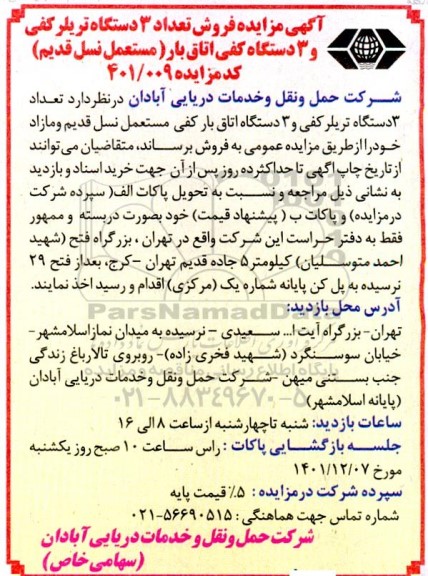 آگهی مزایده فروش تعداد ۳ دستگاه تریلر کفی
و ۳ دستگاه کفی اتاق بار ( مستعمل نسل قدیم )
کد مزایده ۴۰۱/۰۰۹
شــرکت حمل ونقل وخدمات دریایی آبادان درنظردارد تعداد
۳دستگاه تریلر کفی و۳ دستگاه اتاق بار کفی مستعمل نسل قدیم ومازاد
خودرا از طریق مزایده عمومی به فروش برساند، متقاضیان می توانند
از تاریخ چاپ اگهی تا حداکثرده روز پس از آن جهت خرید اسناد و بازدید
به نشانی ذیل مراجعه و نسبت به تحویل پاکات الف( سپرده شرکت
درمزایده) و پاکات ب ( پیشنهاد قیمت) خود بصورت دربسته و ممهور
فقط به دفتر حراست این شرکت واقع در تهران ، بزرگراه فتح (شهید
احمد متوسلیان) کیلومتر۵ جاده قدیم تهران –کرج، بعداز فتح ۲۹
نرسیده به پل کن پایانه شماره یک (مرکزی) اقدام و رسید اخذ نمایند.
آدرس محل بازدید:
تهران- بزرگراه آیت ا... سـعیدی – نرسیده به میدان نمازاسلامشهر-
خیابان سوسنگرد (شهید فخری زاده)- روبروی تالارباغ زندگی
جنب بستنی میهن –شــرکت حمل ونقل وخدمات دریایی آبادان
(پایانه اسلامشهر)
ساعات بازدید: شنبه تا چهارشنبه از ساعت ۸ الی ۱۶
جلســه بازگشــایی پاکات : راس ساعت ۱۰ صبح روز یکشنبه
مورخ ۱۴۰۱/۱۲/۰۷
سپرده شرکت درمزایده : ۵٪ قیمت پایه
شماره تماس جهت هماهنگی : ۵۶۶۹۰۵۱۵-۰۲۱
شرکت حمل و نقل و خدمات دریایی آبادان
(سهامی خاص)
ParsNamadData
پایگاه اطلاع رسانی مناقصه و مزایده
۰۲۱-۸۸۳۴۹۶۷۰-۵